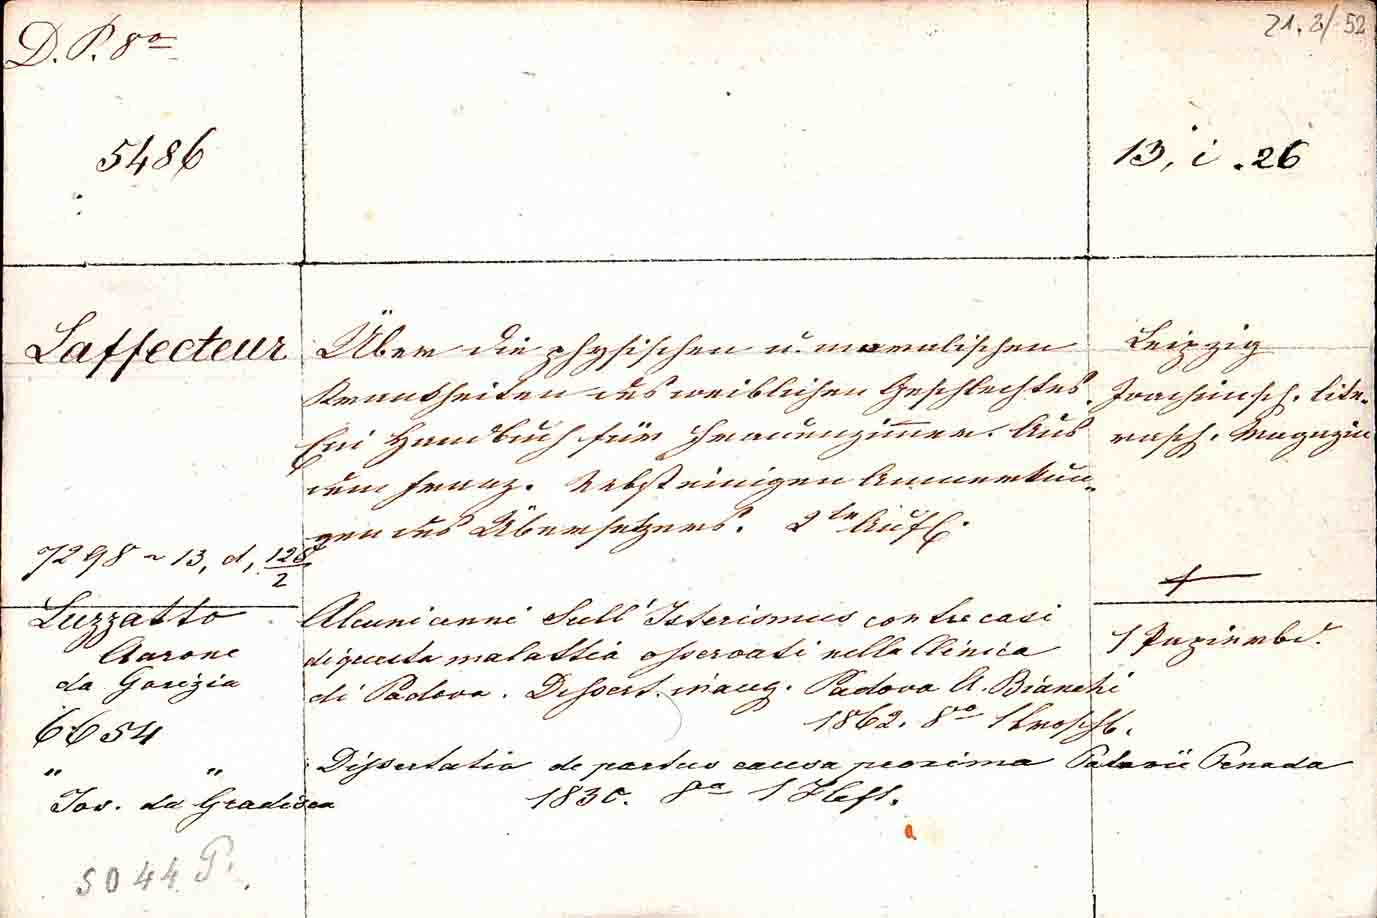 D. P. 8o
21. 2/52
5486
13, i. 26
Laffecteur
Über die physischen u. moralischen
Krankheiten des weiblichen Geschlechtes.
Ein Handbuch für Frauenzimmer. Aus
dem Franz. Nebst einigen Anmerkun-
gen des Übersetzers. 2te Aufl.
Leipzig
Joachimsch. lite-
rarisch. Magazin
7298 ~ 13, d, 128/2
Luzzatto
Aarone
da Gorizia
6654
Alcuni cenni Sull' Isterismus con tre casi
di questa malattia osservati nella Clinica
di Padova. Dissert. inaug. Padova A. Bianchi
1862. 8o 1 brosch.
1 Papierbd.
" "
Jos. da Gradisca
Dissertatio de partus causa proxima Patavii Penada
1830. 8o 1 Heft.
5044 P.